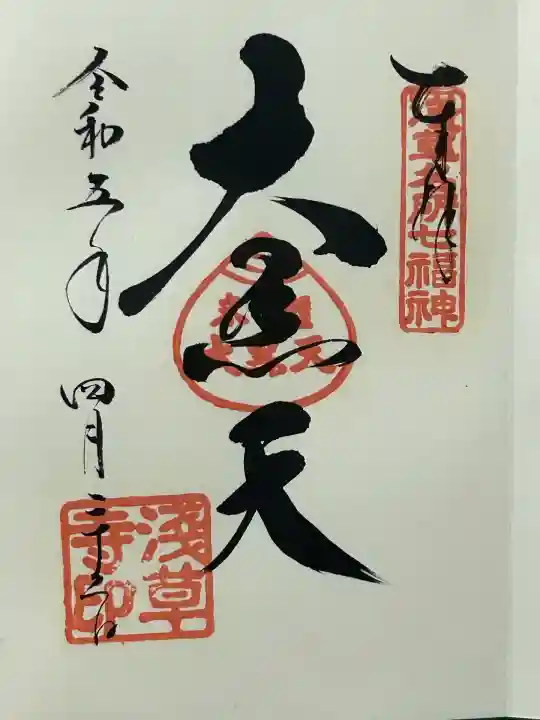 奉拝
浅草名所七福神
大黒天
令和五年
四月二十
日
浅草
寺印